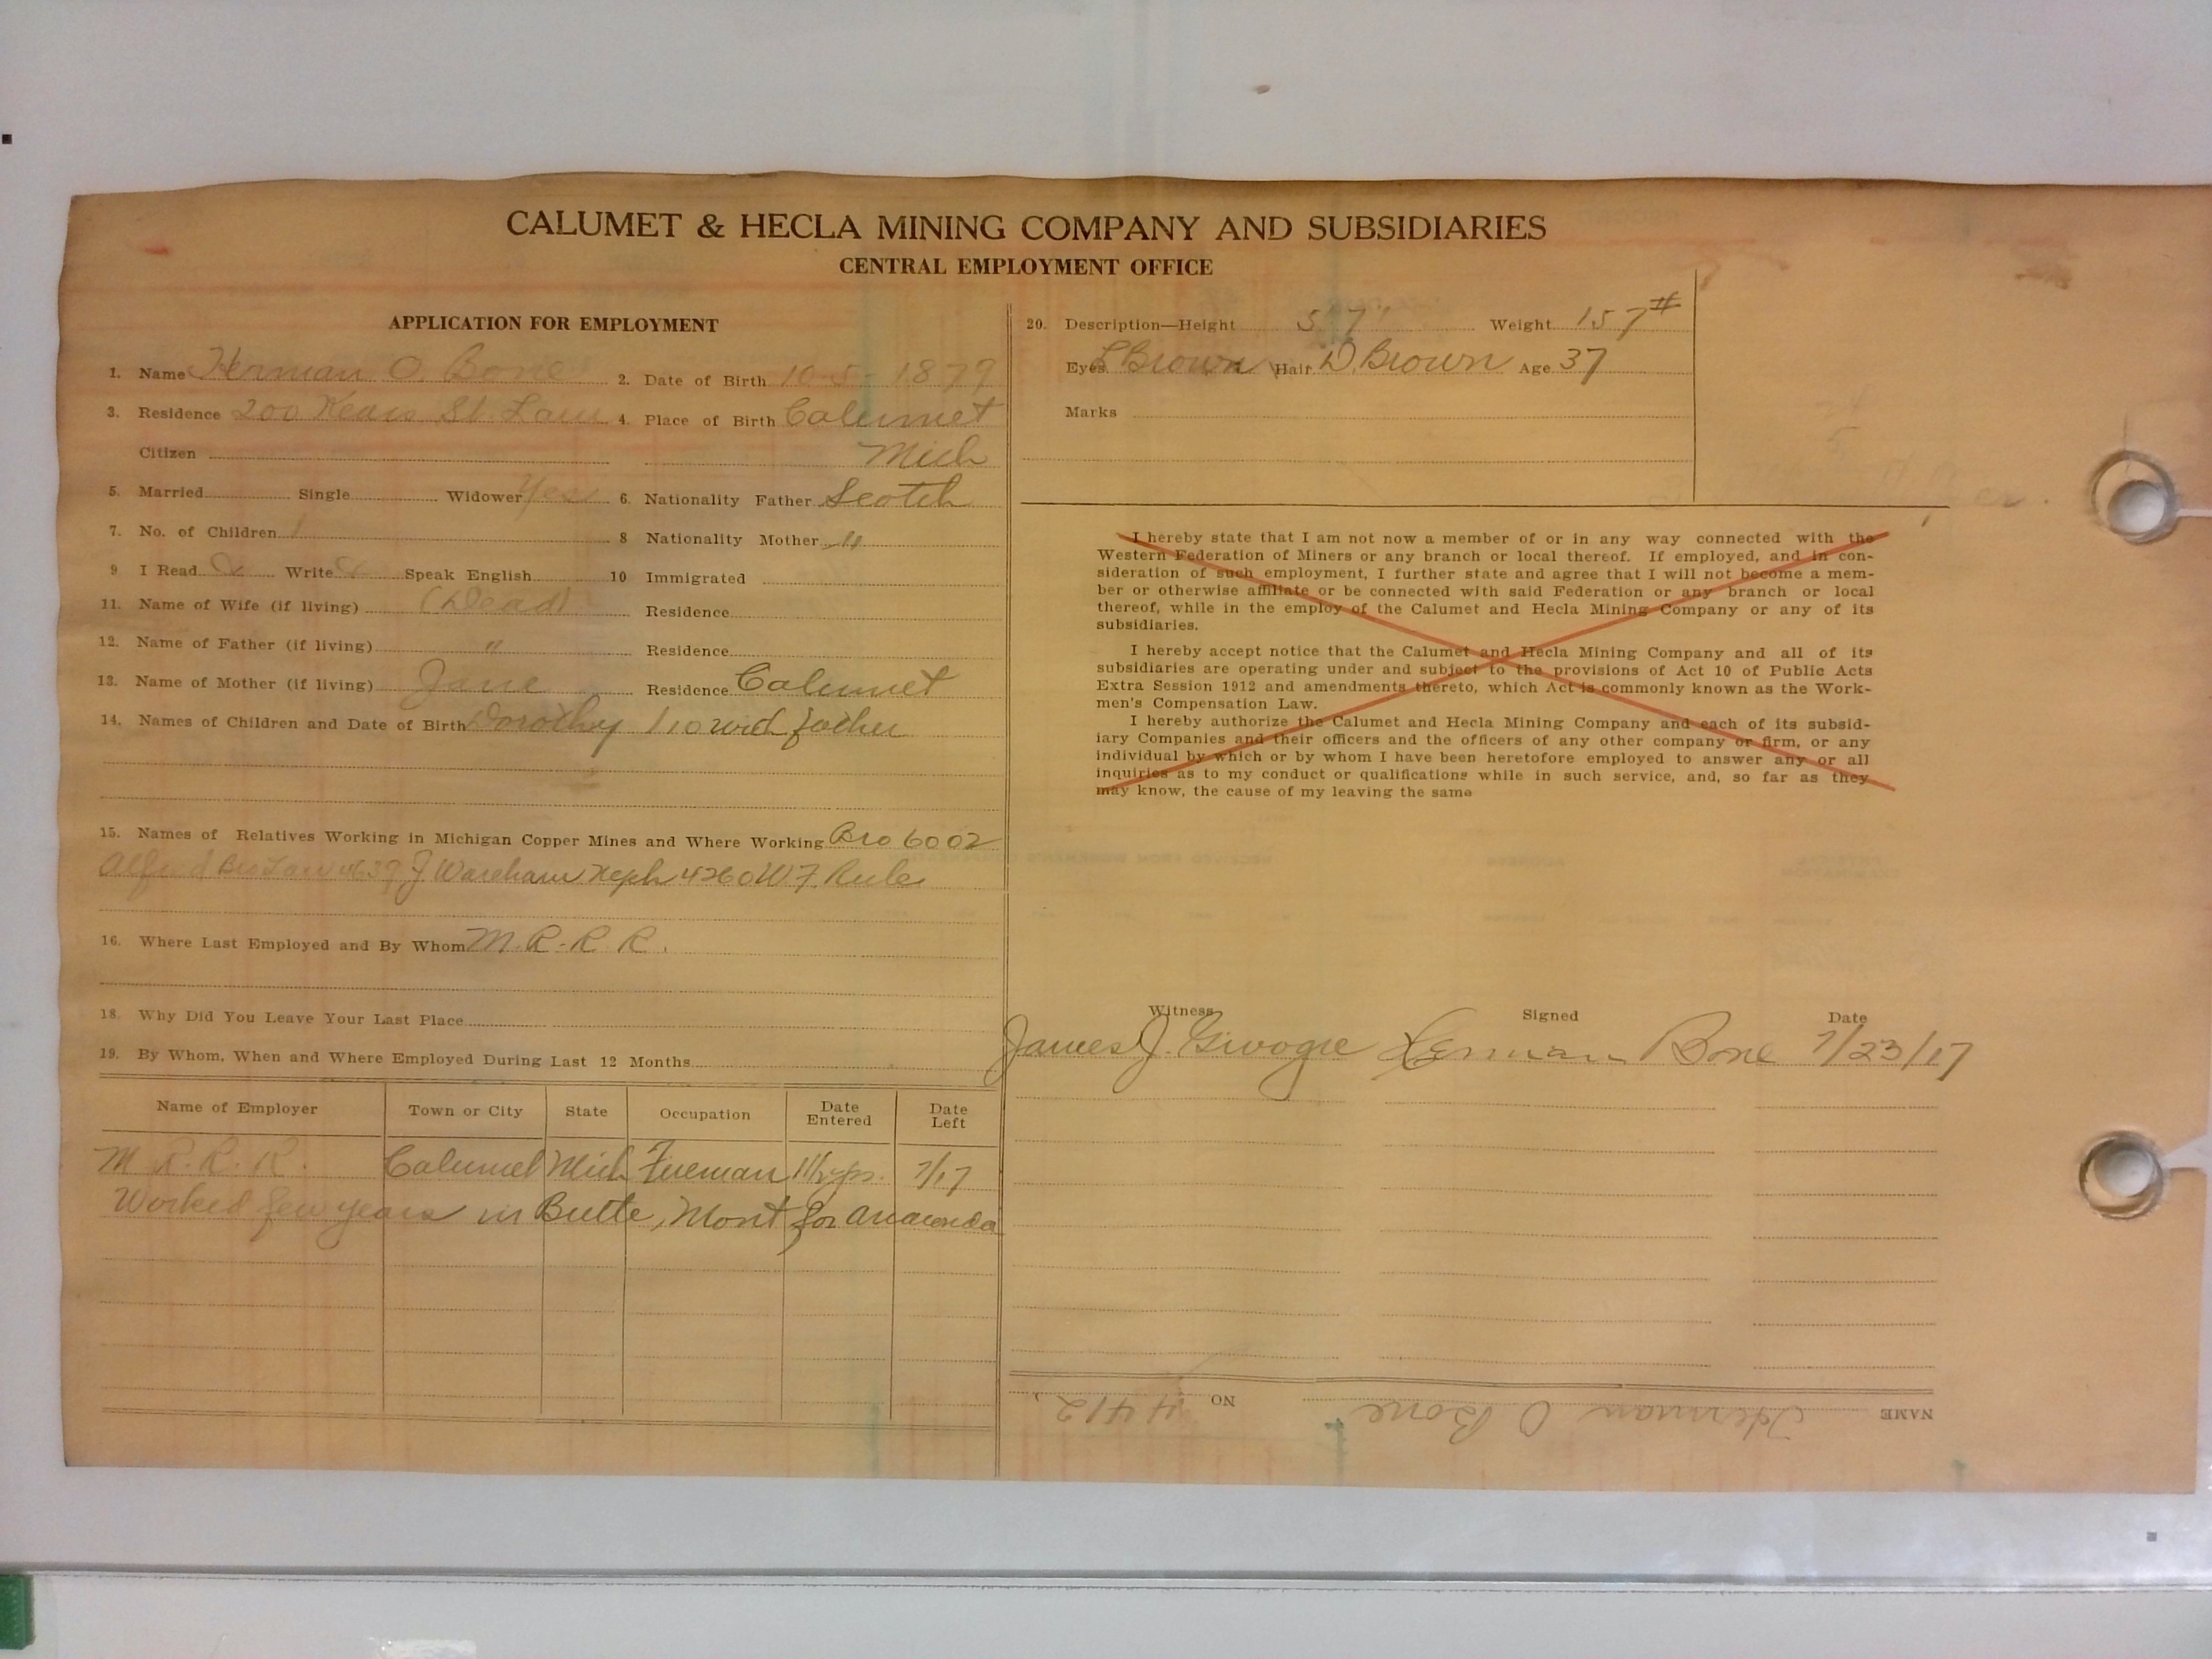 CALUMET & HECLA MINING COMPANY AND SUBSIDIARIES
CENTRAL EMPLOYMENT OFFICE
APPLICATION FOR EMPLOYMENT
1. Name Herman O. Bone 2. Date of Birth 10-5-1879
3. Residence 200 St. Laur 4. Place of Birth Calumet
Citizen Mich
5. Married Single Widower Yes 6. Nationality Father Scotch
7. No. of Children 1 8 Nationality Mother "
9 I Read Write Speak English 10 Immigrated
11. Name of Wife (if living) (Dead) Residence
12. Name of Father (if living) " Residence
13. Name of Mother (if living) Jane Residence Calumet
14. Names of Children and Date of Birth Dorothy 10 with father
15. Names of Relatives Working in Michigan Copper Mines and Where Working Bro 6002
Alfred Bro Law 4637 J Wareham Neph 4260 W F. Rule
16. Where Last Employed and By Whom M. R. R. R.
18. Why Did You Leave Your Last Place
19. By Whom, When and Where Employed During Last 12 Months
Name of Employer Town or City State Occupation Date Entered Date Left
M R. R. R. Calumet Mich Fireman 11 1/2 yrs. 7/17
Worked few years in Butte, Mont for Anaconda
20. Description—Height 5' 7" Weight 157#
Eyes L Brown Hair D. Brown Age 37
Marks
I hereby state that I am not now a member of or in any way connected with the
Western Federation of Miners or any branch or local thereof. If employed, and in con-
sideration of such employment, I further state and agree that I will not become a mem-
ber or otherwise affiliate or be connected with said Federation or any branch or local
thereof, while in the employ of the Calumet and Hecla Mining Company or any of its
subsidiaries.
I hereby accept notice that the Calumet and Hecla Mining Company and all of its
subsidiaries are operating under and subject to the provisions of Act 10 of Public Acts
Extra Session 1912 and amendments thereto, which Act is commonly known as the Work-
men's Compensation Law.
I hereby authorize the Calumet and Hecla Mining Company and each of its subsid-
iary Companies and their officers and the officers of any other company or firm, or any
individual by which or by whom I have been heretofore employed to answer any or all
inquiries as to my conduct or qualifications while in such service, and, so far as they
may know, the cause of my leaving the same
Witness Signed Date
James J. Herman Bone 7/23/17
NAME Herman O Bone NO 4412